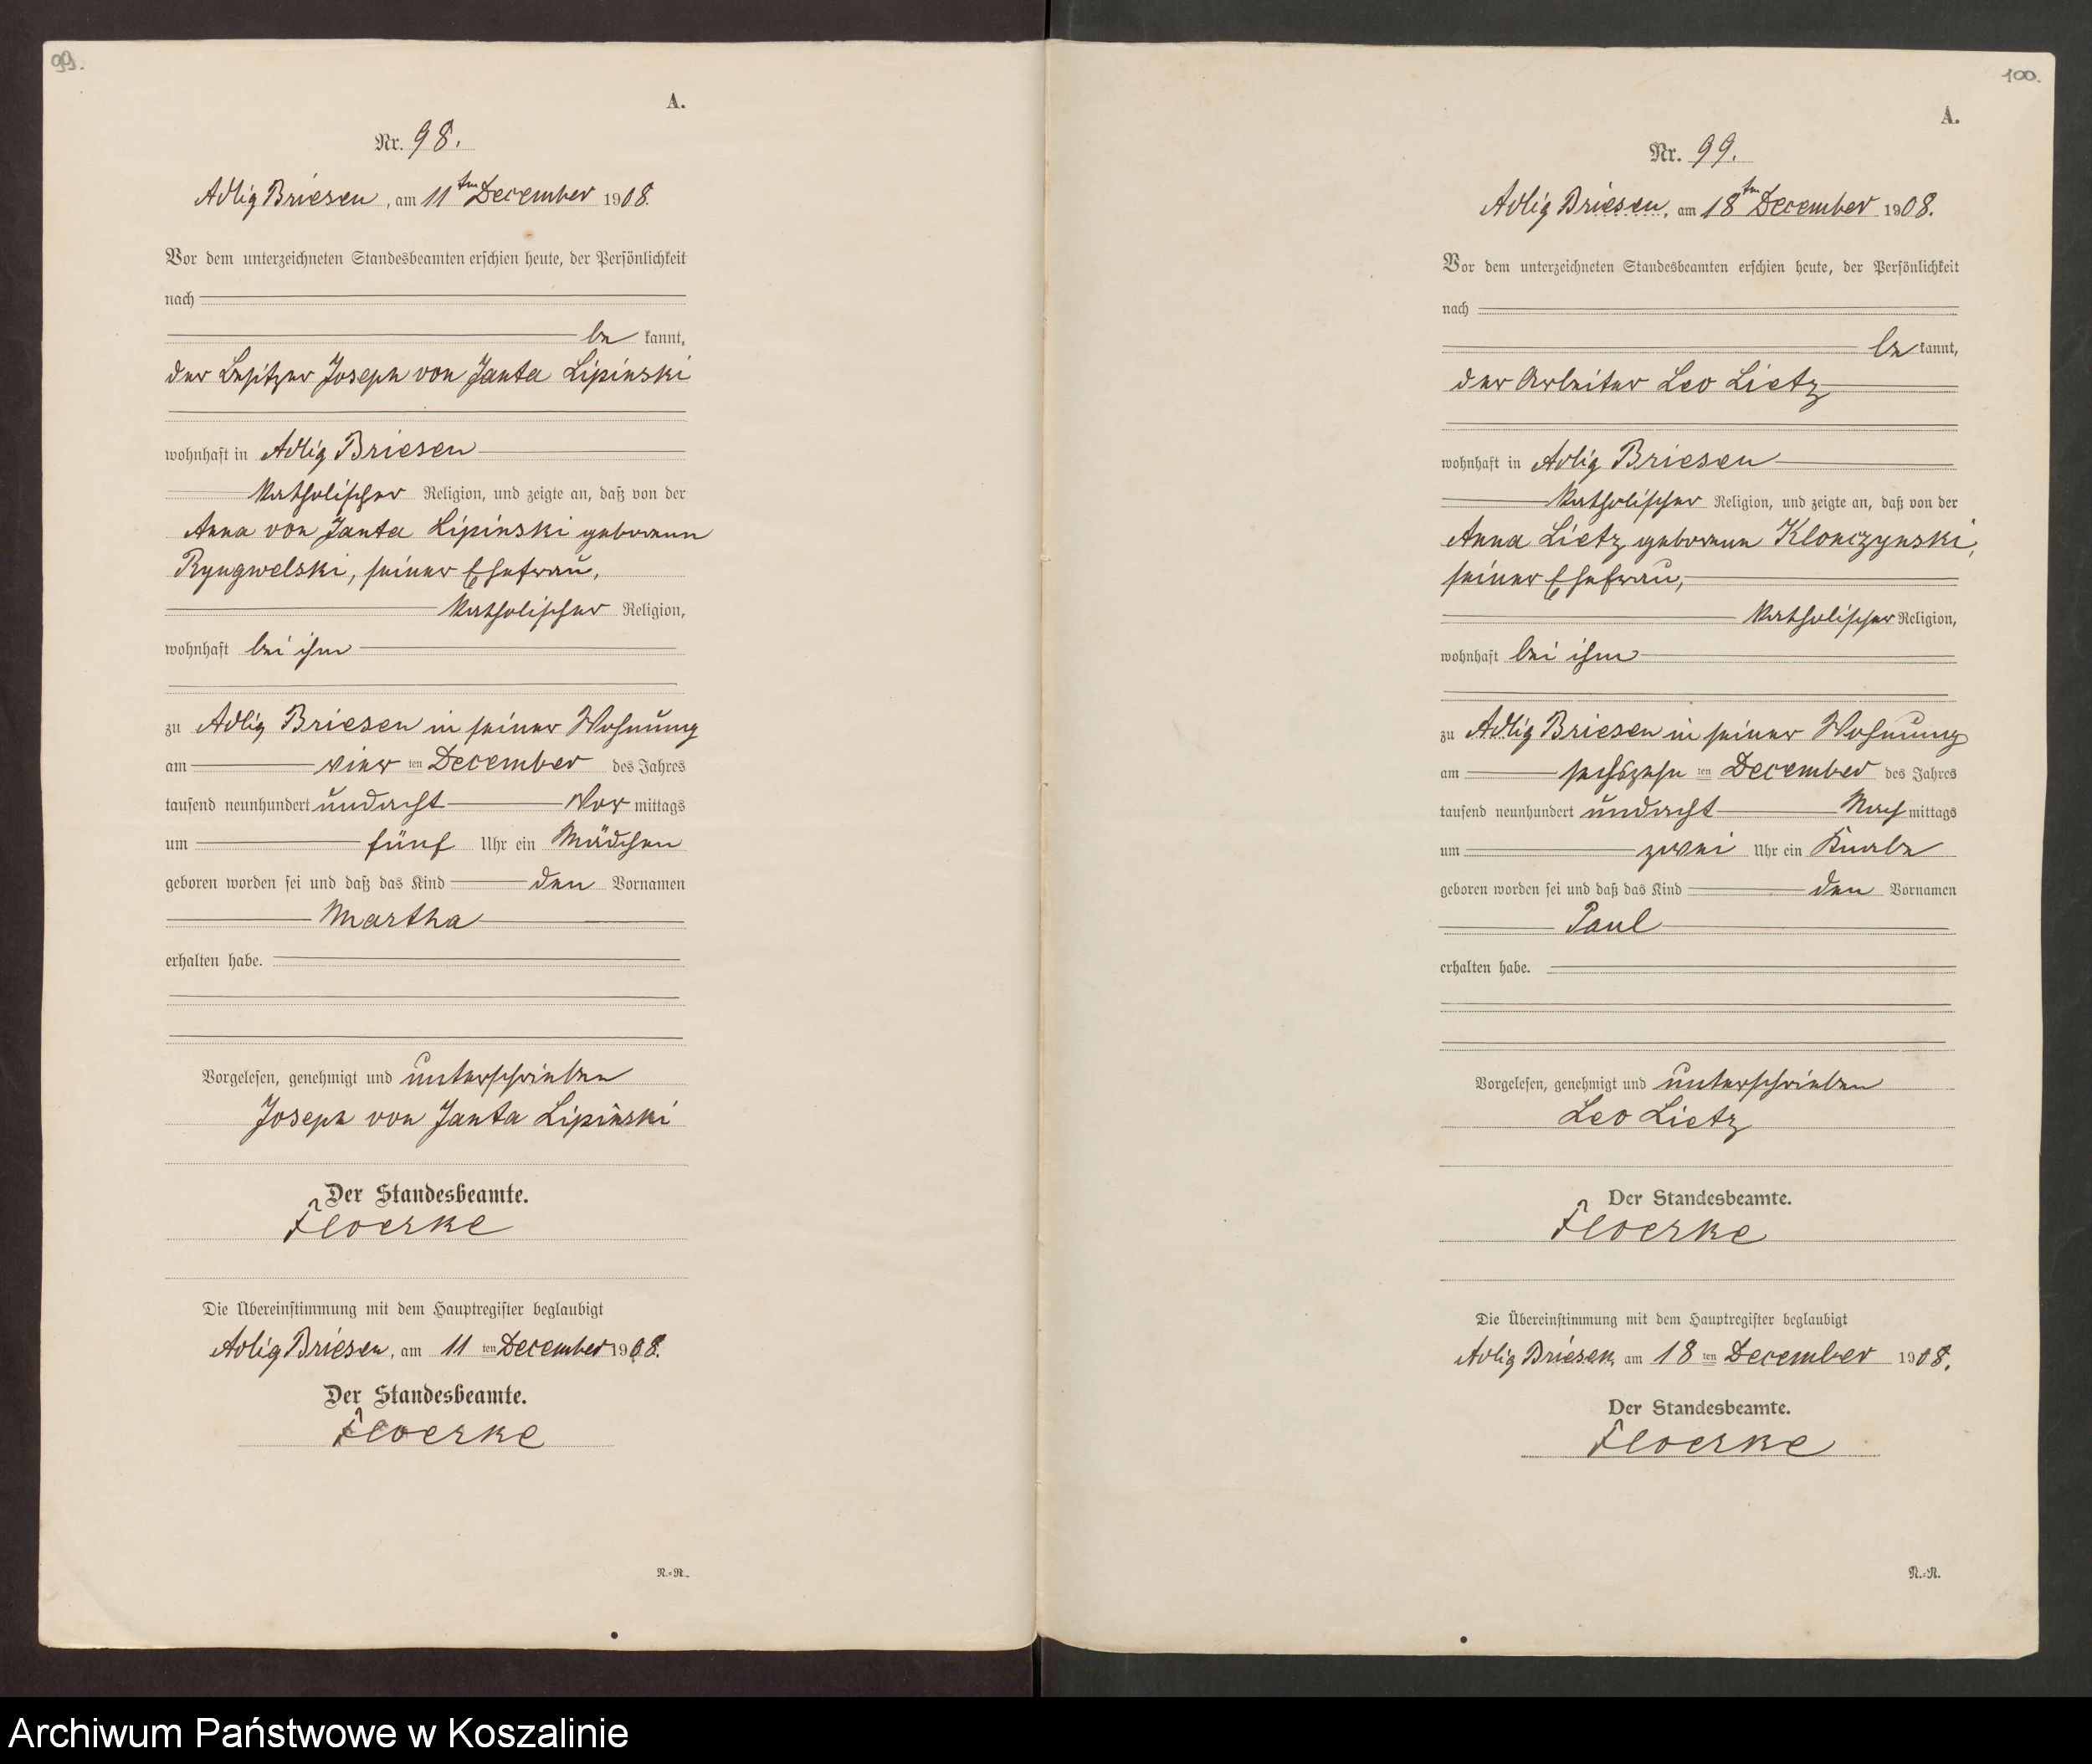 99.
A.
Nr. 98.
Adlig Briesen, am 11ten December 1908.
Vor dem unterzeichneten Standesbeamten erschien heute, der Persönlichkeit
nach
be kannt,
der Besitzer Joseph von Janta Lipinski
wohnhaft in Adlig Briesen
katholischer Religion, und zeigte an, daß von der
Anna von Janta Lipinski geborenen
Ryngwelski, seiner Ehefrau,
katholischer Religion,
wohnhaft bei ihm
zu Adlig Briesen in seiner Wohnung
am vier ten December des Jahres
tausend neunhundert undacht Vor mittags
um fünf Uhr ein Mädchen
geboren worden sei und daß das Kind den Vornamen
Martha
erhalten habe.
Vorgelesen, genehmigt und unterschrieben
Joseph von Janta Lipinski
Der Standesbeamte.
Floerke
Die Übereinstimmung mit dem Hauptregister beglaubigt
Adlig Briesen, am 11 ten December 1908.
Der Standesbeamte.
Floerke
N.=R.
100.
A.
Nr. 99.
Adlig Briesen, am 18ten December 1908.
Vor dem unterzeichneten Standesbeamten erschien heute, der Persönlichkeit
nach
be kannt,
der Arbeiter Leo Lietz
wohnhaft in Adlig Briesen
katholischer Religion, und zeigte an, daß von der
Anna Lietz geborenen Klonczynski,
seiner Ehefrau,
katholischer Religion,
wohnhaft bei ihm
zu Adlig Briesen in seiner Wohnung
am sechszehn ten December des Jahres
tausend neunhundert undacht Nach mittags
um zwei Uhr ein Knabe
geboren worden sei und daß das Kind den Vornamen
Paul
erhalten habe.
Vorgelesen, genehmigt und unterschrieben
Leo Lietz
Der Standesbeamte.
Floerke
Die Übereinstimmung mit dem Hauptregister beglaubigt
Adlig Briesen, am 18 ten December 1908.
Der Standesbeamte.
Floerke
N.=R.
Archiwum Państwowe w Koszalinie